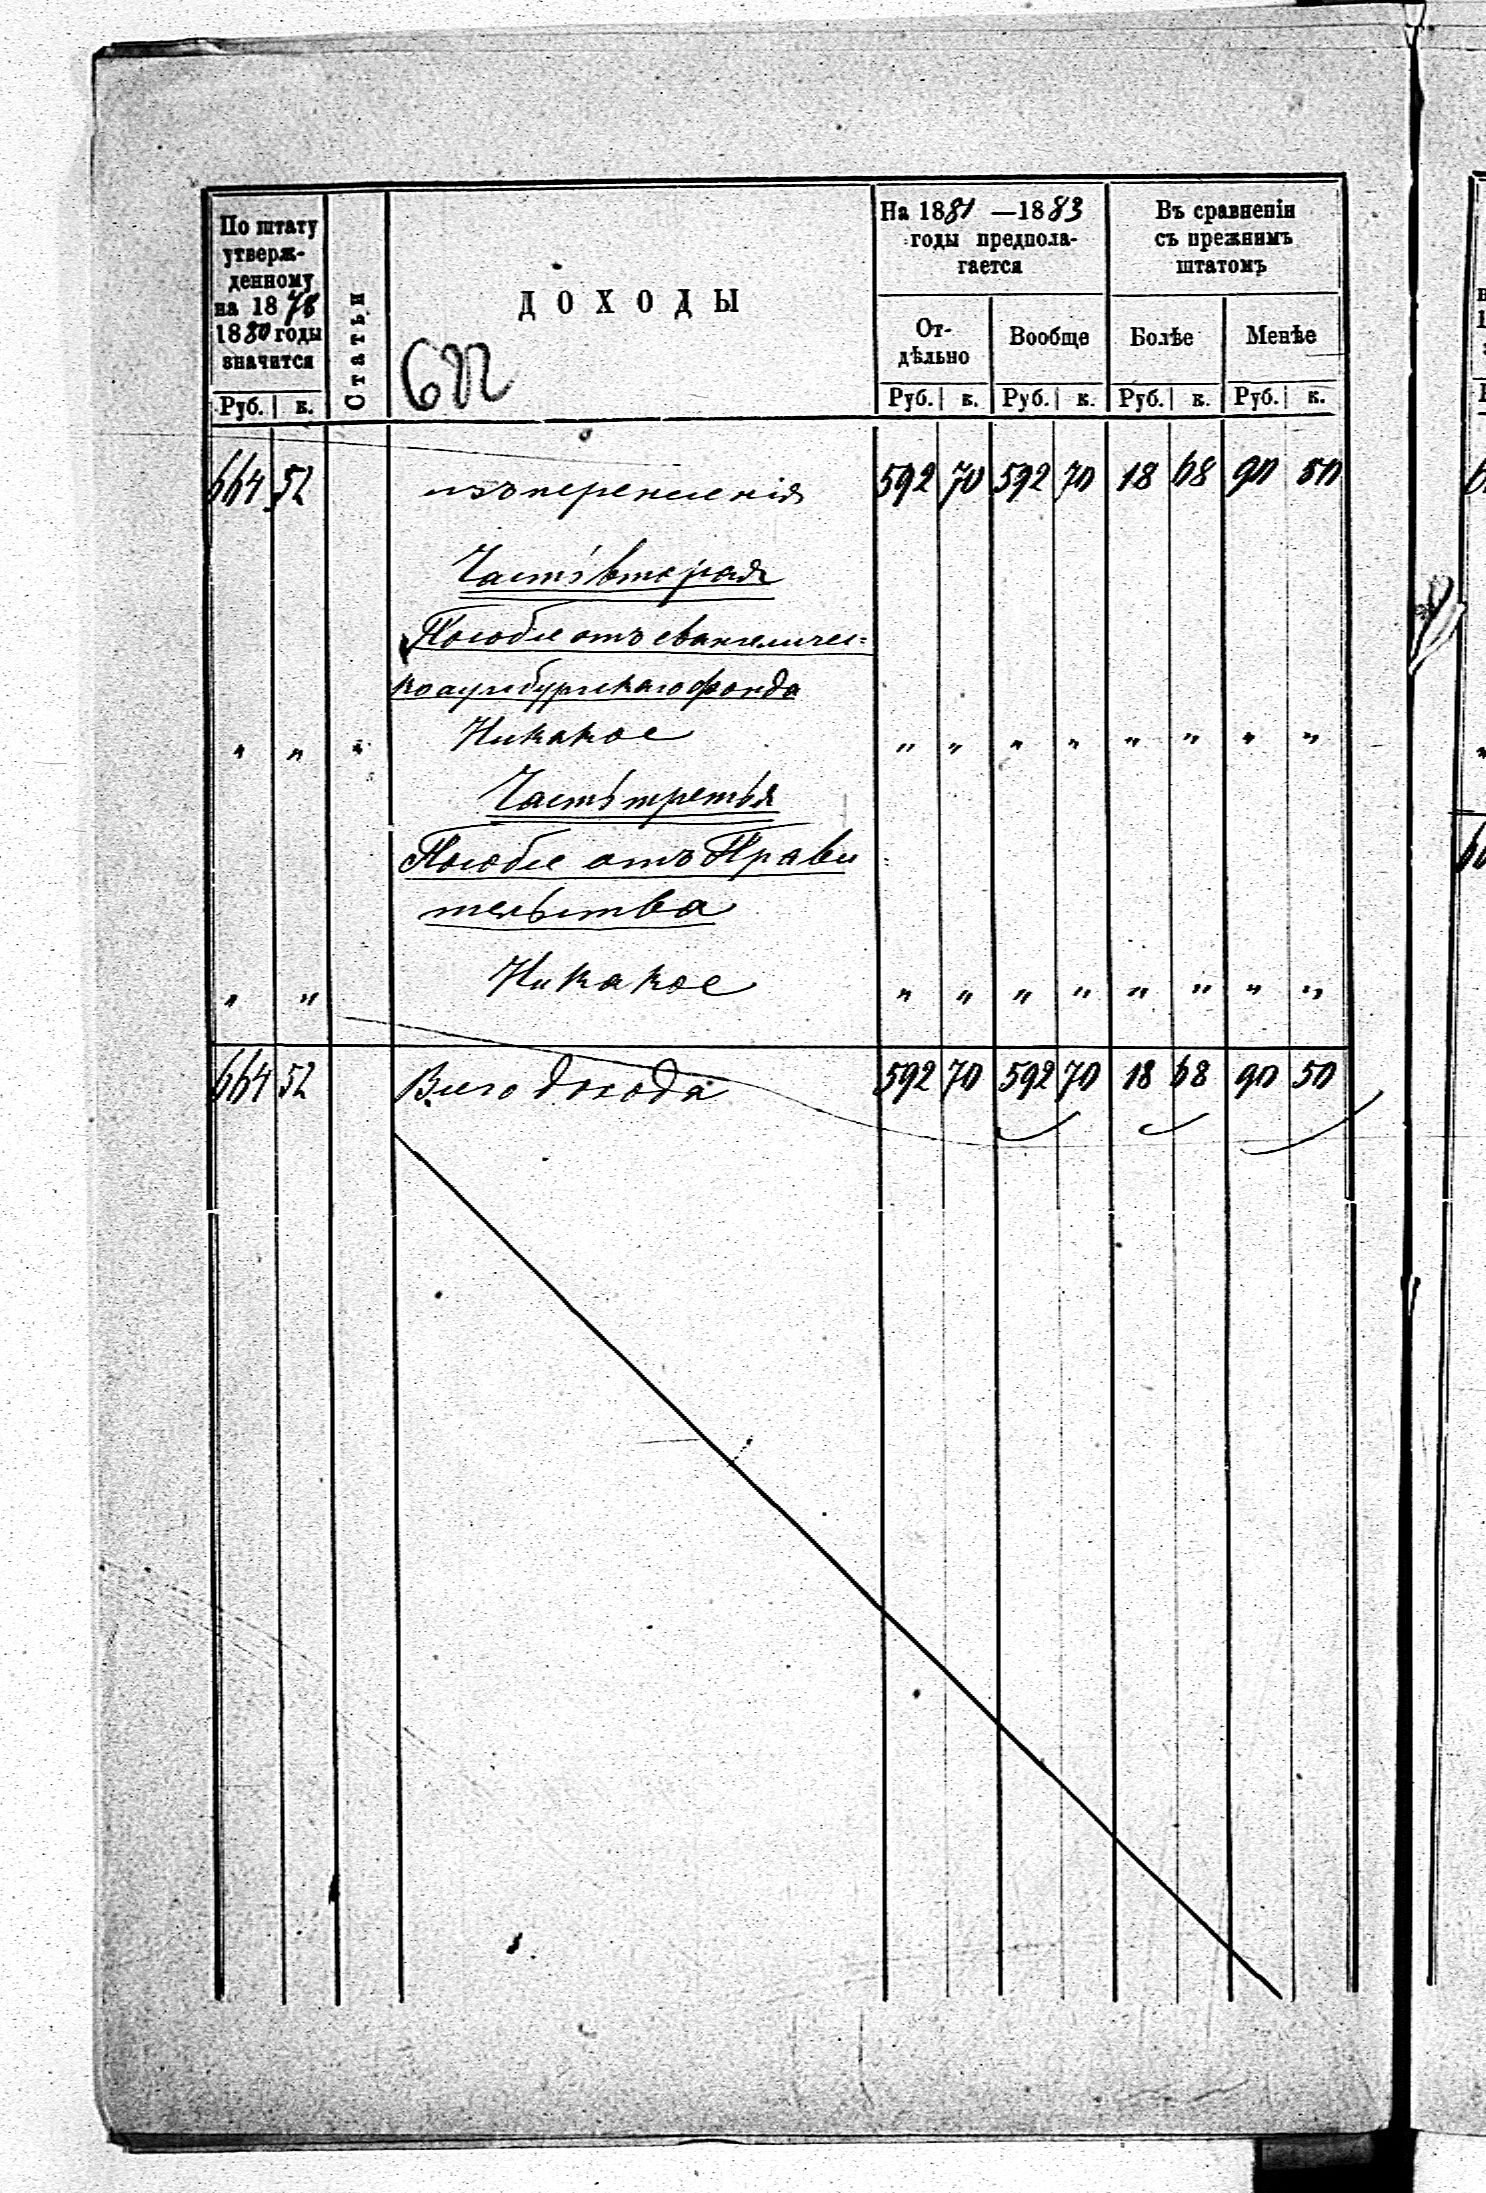 По штату
утверж-
денному
на 1878
1880 годы
значится
Руб. к.
Статьи
ДОХОДЫ
На 1881 —1883
годы предпола-
гается
От-
дѣльно
Вообще
Руб. к. Руб. к.
Въ сравненіи
съ прежнимъ
штатомъ
Болѣе
Менѣе
Руб. к. Руб. к.
664 52 изъ перенесенія 592 70 592 70 18 68 90 50
Часть вторая
Пособіе отъ евангеличес-
коаугсбургскаго фонда
" " " Никакое " " " " " " " "
Часть третья
Пособіе отъ Прави-
тельства
" " Никакое " " " " " " " "
664 52 Всего дохода 592 70 592 70 18 68 90 50